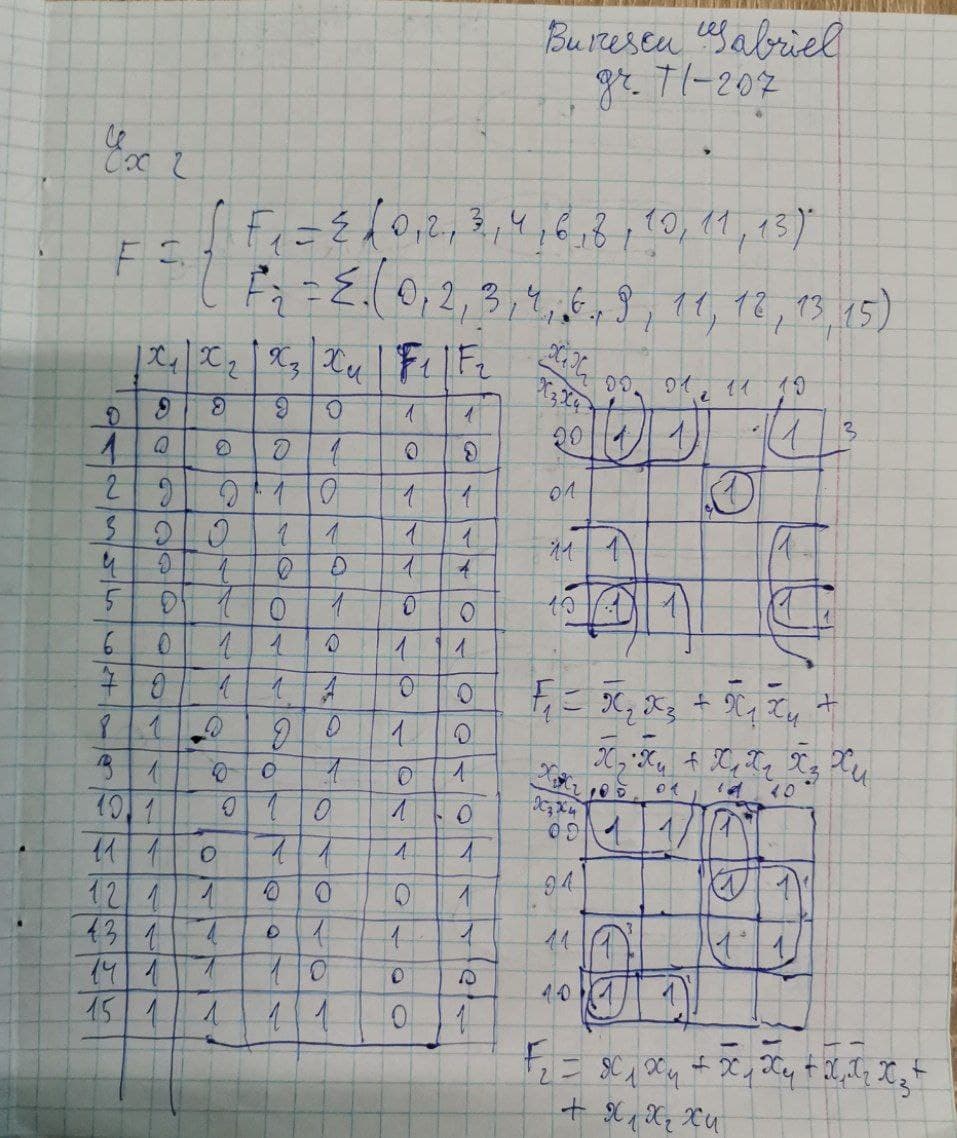 Buzescu Gabriel
gr. TI-207
Ex 2
F = { F₁ = Σ (0, 2, 3, 4, 6, 8, 10, 11, 13)
F₂ = Σ (0, 2, 3, 4, 6, 9, 11, 12, 13, 15)
x₁ x₂ x₃ x₄ F₁ F₂
0 0 0 0 0 1 1
1 0 0 0 1 0 0
2 0 0 1 0 1 1
3 0 0 1 1 1 1
4 0 1 0 0 1 1
5 0 1 0 1 0 0
6 0 1 1 0 1 1
7 0 1 1 1 0 0
8 1 0 0 0 1 0
9 1 0 0 1 0 1
10 1 0 1 0 1 0
11 1 0 1 1 1 1
12 1 1 0 0 0 1
13 1 1 0 1 1 1
14 1 1 1 0 0 0
15 1 1 1 1 0 1
x₁x₂
x₃x₄ 00 01 11 10
00 1 1 1 3
01 1
11 1 1
10 1 1 1 1
F₁ = x̄₂ x₃ + x̄₁ x̄₄ +
x̄₂·x̄₄ + x₁ x₂ x̄₃ x₄
x₁x₂ 00 01 11 10
x₃x₄
00 1 1 1
01 1 1
11 1 1 1
10 1 1
F₂ = x₁ x₄ + x̄₁ x̄₄ + x̄₁ x̄₂ x₃ +
+ x₁ x₂ x₄